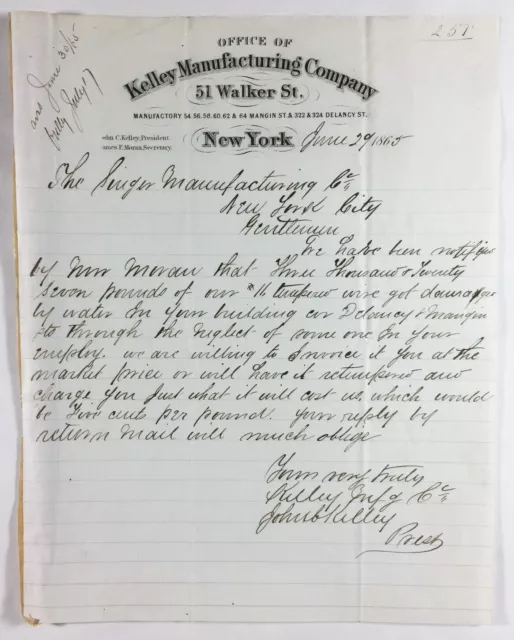 257
ans June 30/65
Kelly July 17
OFFICE OF
Kelley Manufacturing Company
51 Walker St.
MANUFACTORY 54. 56. 58. 60. 62 & 64 MANGIN ST. & 322 & 324 DELANCY ST.
John C. Kelley, President.
James P. Moran, Secretary.
New York June 29 1865
The Singer Manufacturing Co
New York City
Gentlemen
We have been notified
by Mr Moran that Three Thousand & Twenty
seven pounds of our # 16 wire got damage
by water in your building cor Delancy & Mangin
sts through the neglect of some one in your
employ. we are willing to invoice it you at the
market price or will have it and
charge you just what it will cost us, which would
be Five cents per pound. Your reply by
return mail will much oblige
Yours very truly
Kelley Mfg Co
John C Kelley
Prest